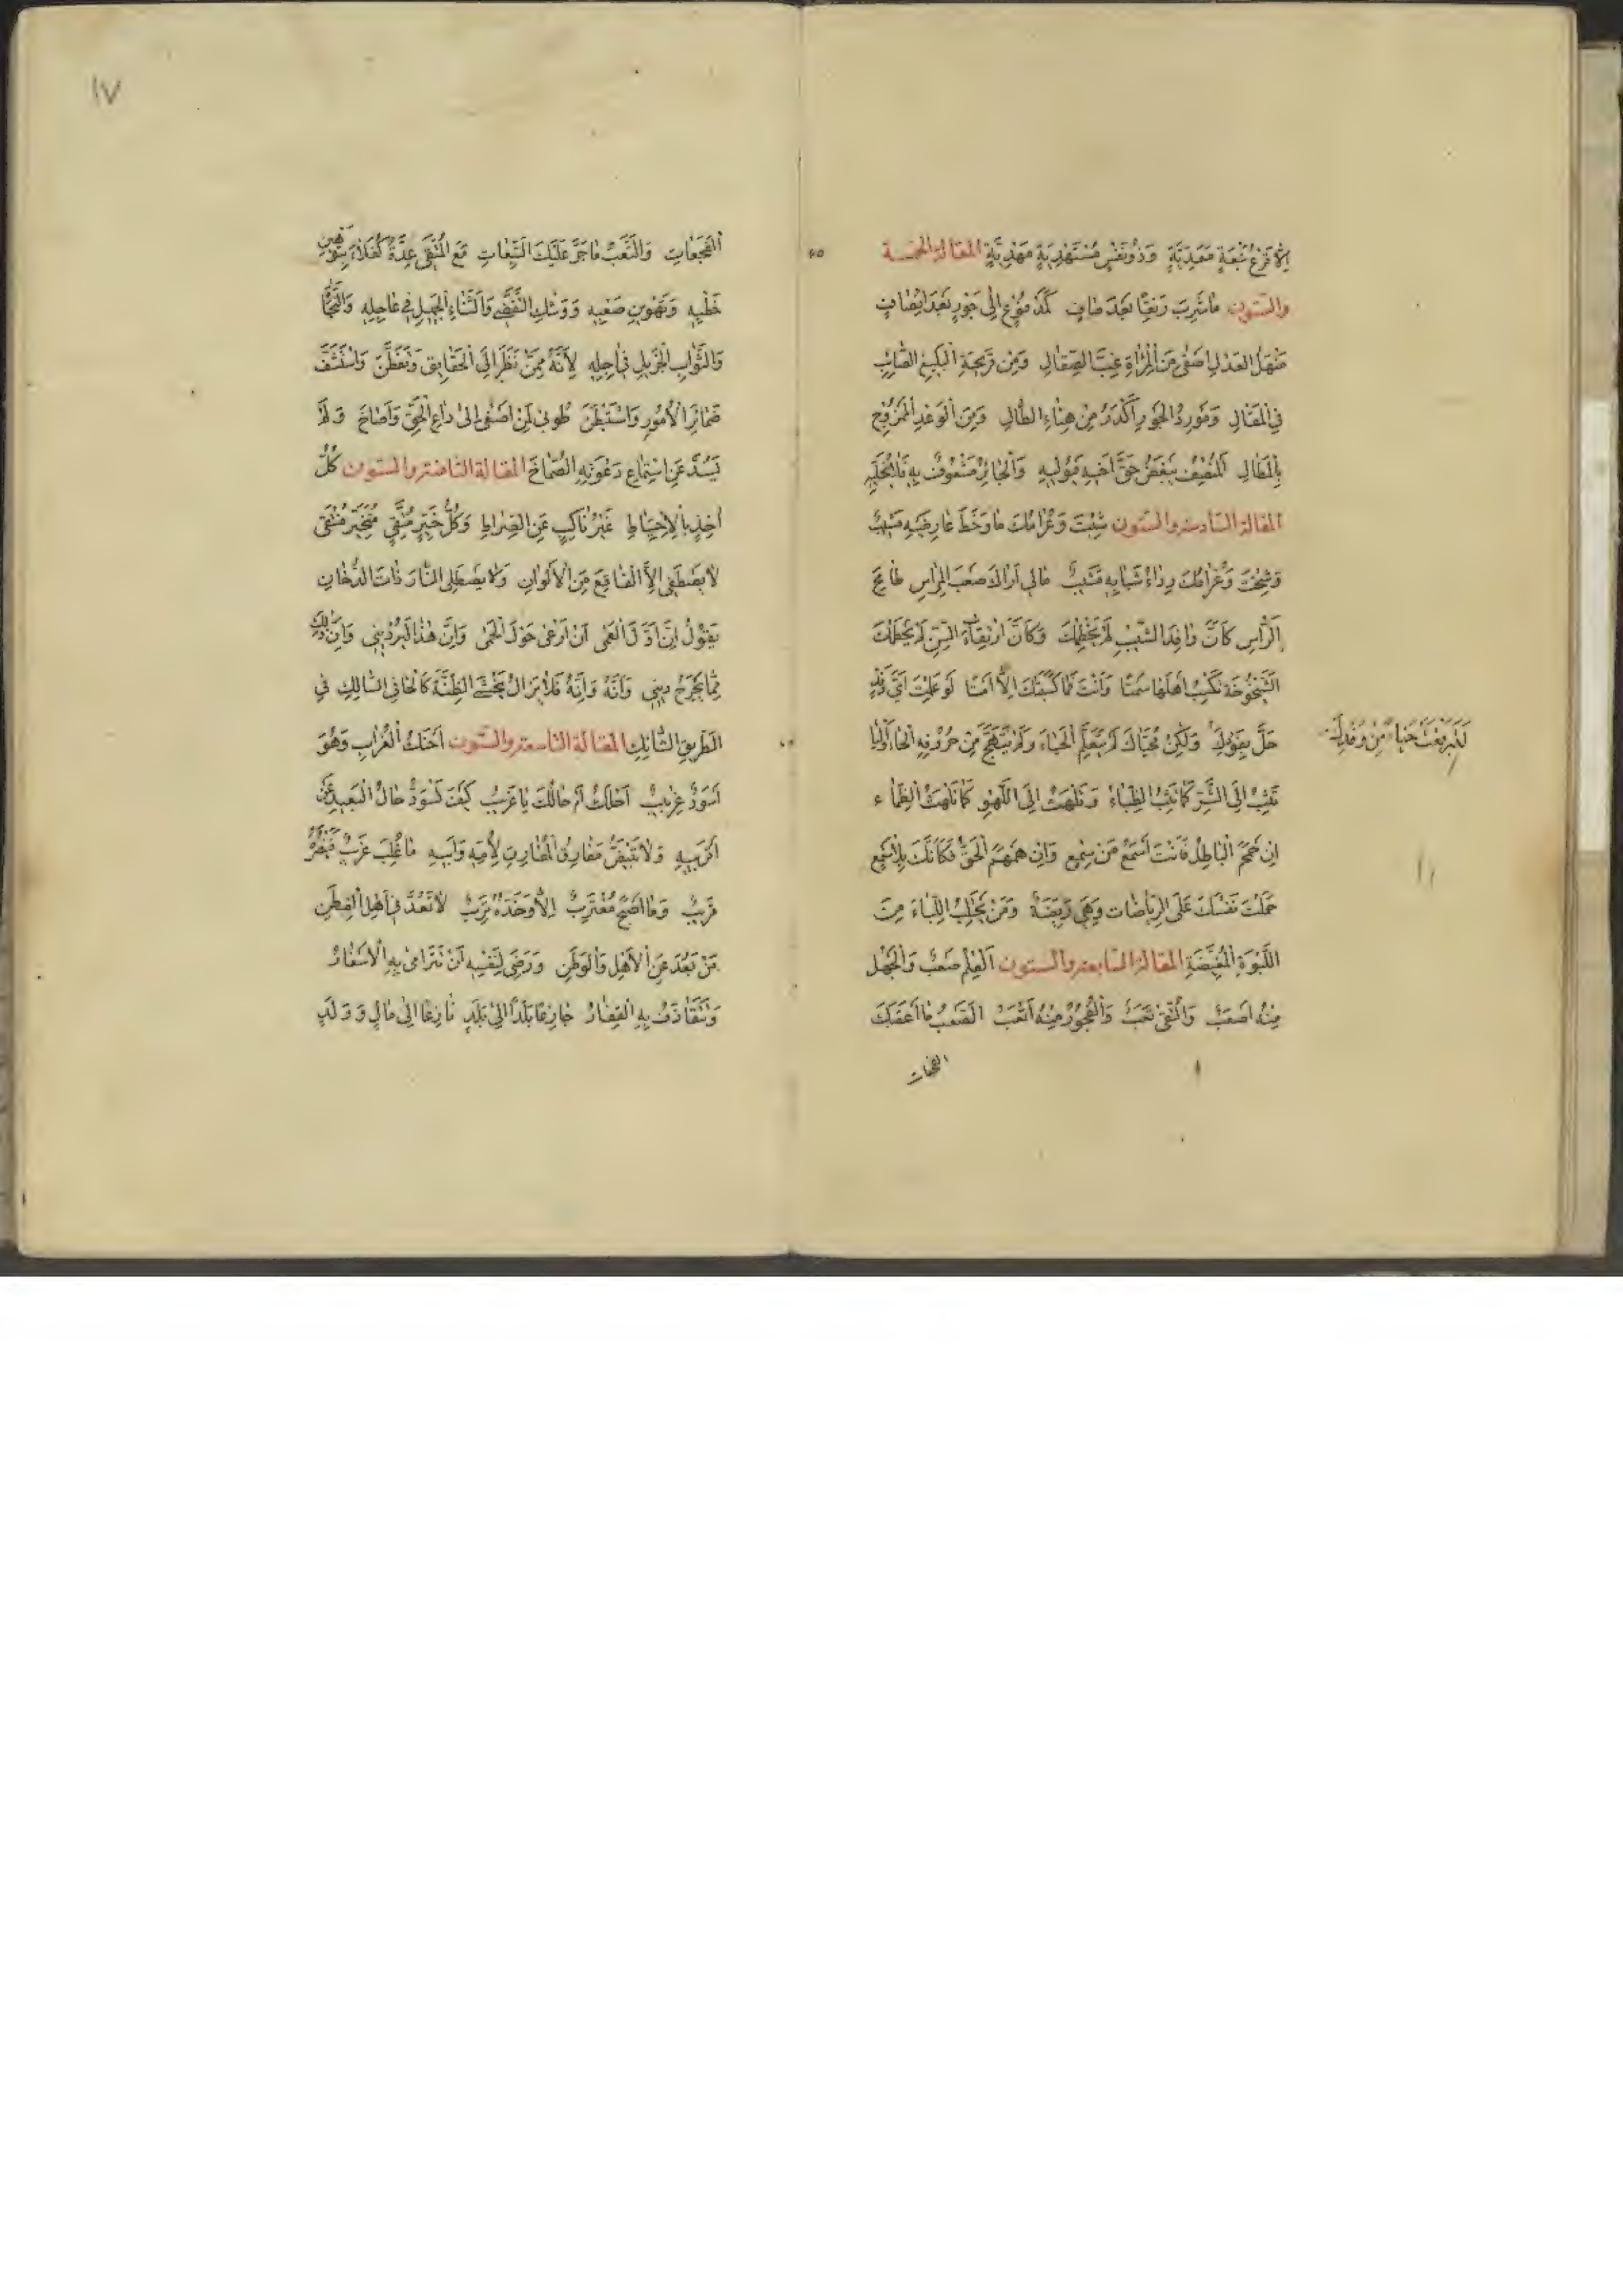 إلا فرع نبعة معدية وذو نفس مستهدية مهدية المقالة الخامسة
والستون ما شرب رنقا بعد صاف كمدفوع إلى جور بعد إنصاف
منهل العدل أصفى من المرآة غب الصقال ومن قريحة البليغ الصائب
في المقال ومورد الجور أكدر من هناء الطال ومن الوعد المزوج
بالمطال المنصف يبغض حق أخيه فيوليه والجائر مشعوف به فلا يخليه
المقالة السادسة والستون شبت وعرامك ما وخط عارضيه مشيب
وشخت وغرامك رداء شبابه قشيب ما لي أراك صعب المراس جامح
الراس كأن وافد الشيب لم يخطمك وكأن ارتقاء السن لم يحطمك
الشيخوخة تكسب أهلها سمتا وأنت ما كسبتك إلا أمتا لو علمت أي وفد
حل بفودك
لتبرقعت حياء من وفدك
ولكن محياك لم يتعلم الحياء ولم يتهج من حروفه الحاء والياء
تثب إلى الشر كما تثب الظباء وتلهث إلى اللهو كما تلهث الظماء
إن حمحم الباطل فأنت أسمع من سمع وإن همهم الحق فكأنك بلا سمع
حملت نفسك على الرياضات وهي ريضة ومن يحتلب اللباء من
اللبوة المغيضة المقالة السابعة والستون العلم صعب والجهل
منه أصعب والتقى تعب والفجور منه أتعب الصعب ما أعقبك
الفجعات
١٧
الفجعات والتعب ما جر عليك التبعات مع المتقي عدة كفلاء بتهوين
خطبه وتهوين صعبه ووشك التقضي والثناء الجميل في عاجله والنجاة
والثواب الجزيل في آجله لأنه ممن نظر إلى الحقايق وتفطن واستشف
ضمائر الأمور واستبطن طوبى لمن أصغى إلى داع الحق وأصاخ ولم
يسد عن استماع دعوته الصماخ المقالة الثامنة والستون كل
آخذ بالاحتياط غير ناكب عن الصراط وكل خير متقي متخير منتقى
لا يصطفي إلا الفاقع من الألوان ولا يصطلي النار ذات الدخان
يقول إن أول العمى أن أرعى حول الحمى وإن هذا لبرد ديني وإن ذلك
مما يجرح ديني وأنه وإنه فلا يزال يخشى الظنة كالحافي السالك في
الطريق الشائك المقالة التاسعة والستون أحنك الغراب وهو
أسود غربيب أحلك أم حالك يا غريب كيف تسود حال البعيد عن
أقربيه ولا تبيض مفارق المفارق لأمه وأبيه ما غلب غريب فينصره
قريب وما أصبح مغترب إلا وخده ترب لا تعد في أهل الفطن
من بعد عن الأهل والوطن ورضي لنفسه أن تترامى به الأسفار
وتتقاذف به القفار جازعا بلدا إلى بلد نازعا إلى مال وولد